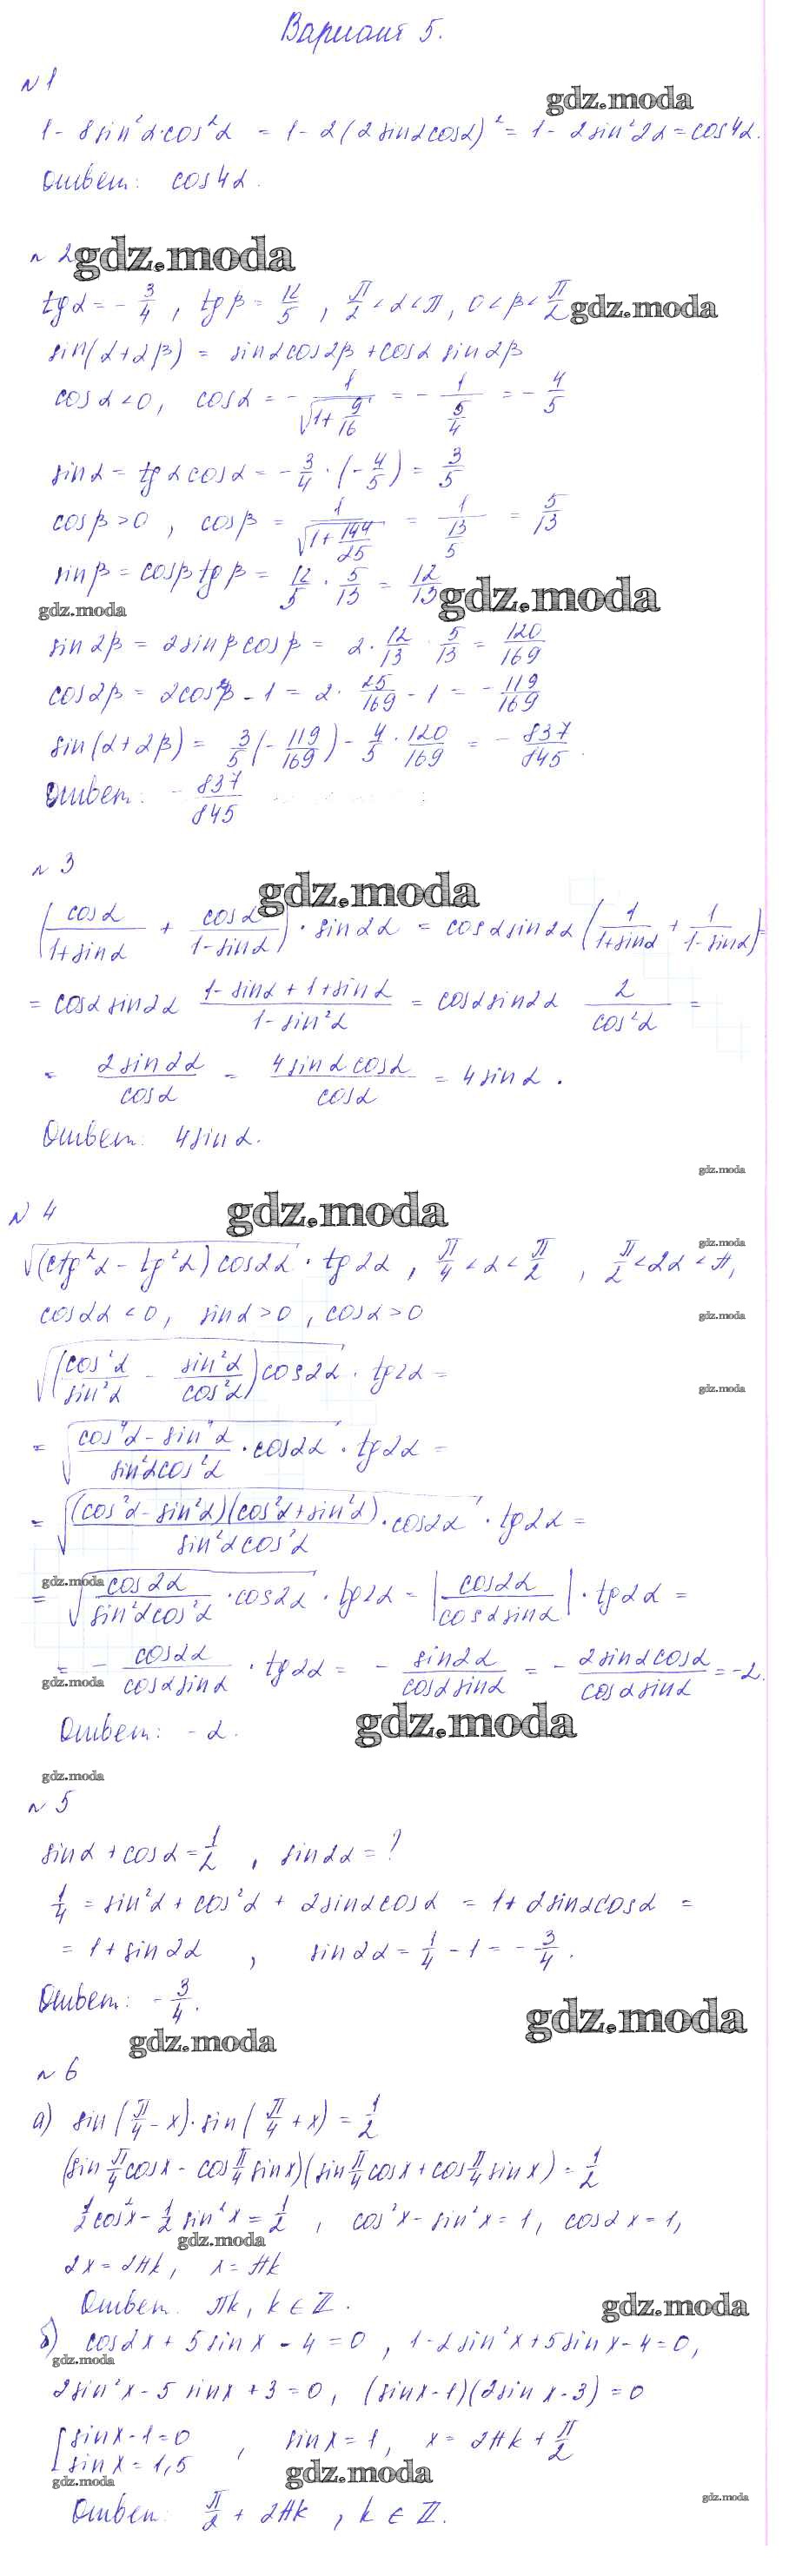 Вариант 5.
№ 1
gdz.moda
1 - 8sin²α·cos²α = 1 - 2(2sinαcosα)² = 1 - 2sin²2α = cos4α.
Ответ: cos4α.
№ 2 gdz.moda
tgα = -3/4, tgβ = 12/5, π/2 < α < π, 0 < β < π/2 gdz.moda
sin(α+2β) = sinαcos2β + cosα sin2β
cosα < 0, cosα = -1/√(1+9/16) = -1/(5/4) = -4/5
sinα = tgαcosα = -3/4 · (-4/5) = 3/5
cosβ > 0, cosβ = 1/√(1+144/25) = 1/(13/5) = 5/13
sinβ = cosβtgβ = 12/5 · 5/13 = 12/13 gdz.moda
gdz.moda
sin2β = 2sinβcosβ = 2·12/13·5/13 = 120/169
cos2β = 2cos²β - 1 = 2·25/169 - 1 = -119/169
sin(α+2β) = 3/5(-119/169) - 4/5·120/169 = -837/845.
Ответ: -837/845
№ 3
gdz.moda
(cosα/(1+sinα) + cosα/(1-sinα))·sin2α = cosαsin2α(1/(1+sinα) + 1/(1-sinα)) =
= cosαsin2α (1-sinα+1+sinα)/(1-sin²α) = cosαsin2α 2/cos²α =
= 2sin2α/cosα = 4sinαcosα/cosα = 4sinα.
Ответ: 4sinα.
gdz.moda
№ 4 gdz.moda
gdz.moda
√((ctg²α - tg²α)cos2α)·tg2α, π/4 < α < π/2, π/2 < 2α < π,
cos2α < 0, sinα > 0, cosα > 0
gdz.moda
√((cos²α/sin²α - sin²α/cos²α)cos2α)·tg2α =
gdz.moda
= √((cos⁴α - sin⁴α)/(sin²αcos²α)·cos2α)·tg2α =
= √((cos²α-sin²α)(cos²α+sin²α)/(sin²αcos²α)·cos2α)·tg2α =
gdz.moda
= √(cos2α/(sin²αcos²α)·cos2α)·tg2α = |cos2α/(cosαsinα)|·tg2α =
= -cos2α/(cosαsinα)·tg2α = -sin2α/(cosαsinα) = -2sinαcosα/(cosαsinα) = -2.
gdz.moda
Ответ: -2. gdz.moda
gdz.moda
№ 5
sinα + cosα = 1/2, sin2α = ?
1/4 = sin²α + cos²α + 2sinαcosα = 1 + 2sinαcosα =
= 1 + sin2α, sin2α = 1/4 - 1 = -3/4.
Ответ: -3/4.
gdz.moda
gdz.moda
№ 6
а) sin(π/4 - x)·sin(π/4 + x) = 1/2
(sin π/4 cosx - cos π/4 sinx)(sin π/4 cosx + cos π/4 sinx) = 1/2
1/2cos²x - 1/2 sin²x = 1/2, cos²x - sin²x = 1, cos2x = 1,
gdz.moda
2x = 2πk, x = πk
Ответ. πk, k ∈ ℤ.
gdz.moda
б) cos2x + 5sinx - 4 = 0, 1 - 2sin²x + 5sinx - 4 = 0,
gdz.moda
2sin²x - 5 sinx + 3 = 0, (sinx - 1)(2sinx - 3) = 0
[sinx - 1 = 0
sinx = 1,5, sinx = 1, x = 2πk + π/2
gdz.moda
gdz.moda
Ответ: π/2 + 2πk, k ∈ ℤ.
gdz.moda